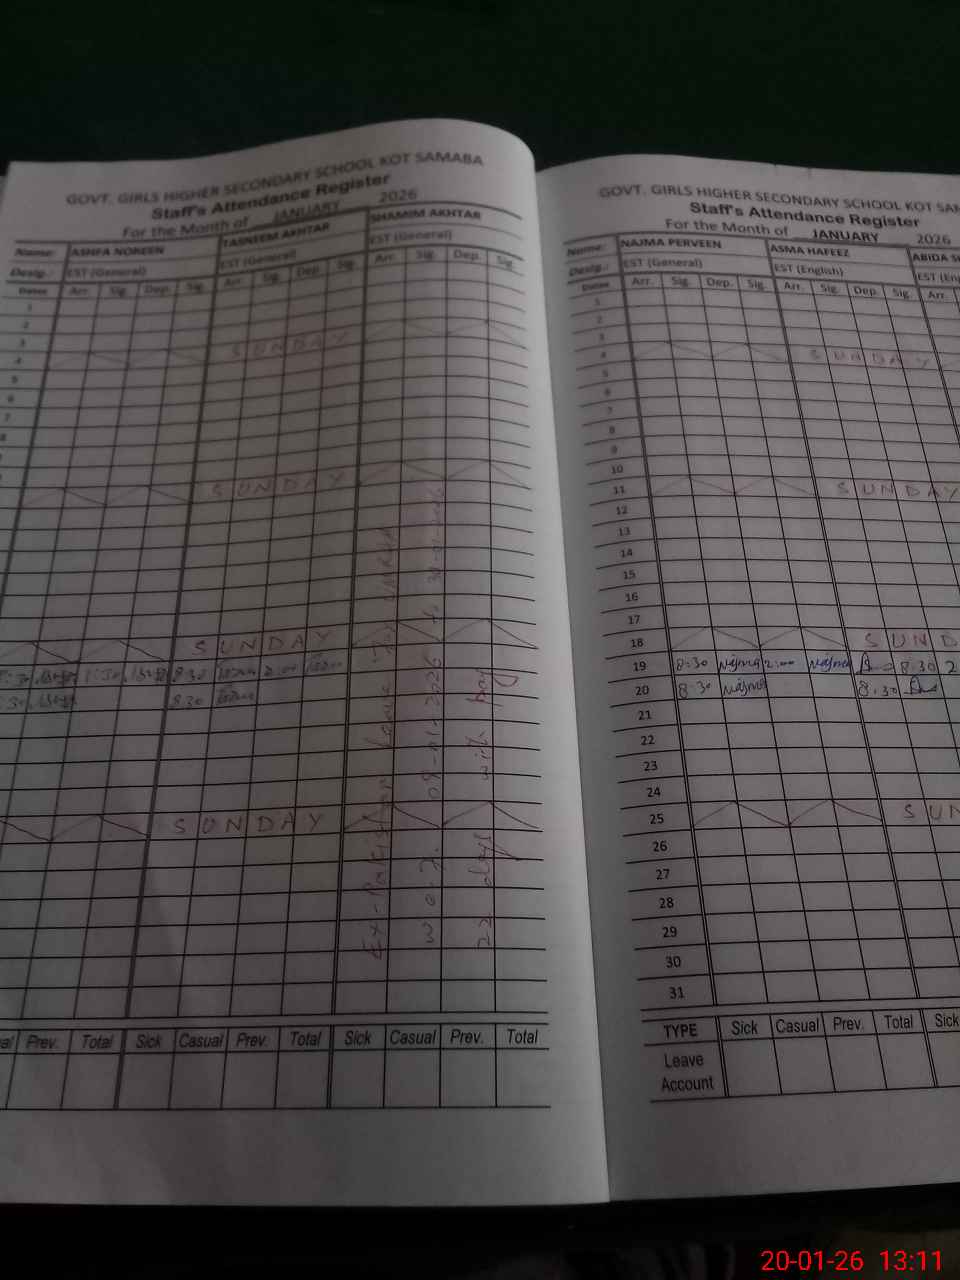 GOVT. GIRLS HIGHER SECONDARY SCHOOL KOT SAMABA
Staff's Attendance Register
For the Month of JANUARY 2026
Name: ASHFA NOREEN TASNEEM AKHTAR SHAMIM AKHTAR
Desig.: EST (General) EST (General) EST (General)
Dates Arr. Sig. Dep. Sig. Arr. Sig. Dep. Sig. Arr. Sig. Dep. Sig.
1
2
3
4 SUNDAY
5
6
7
8
SUNDAY
SUNDAY
8:30 2:00
8:30
SUNDAY
Ex-Pakistan Leave
w.e.f. 09-01-2026 to 30-01-2026
22 days with pay
Prev. Total Sick Casual Prev. Total Sick Casual Prev. Total
GOVT. GIRLS HIGHER SECONDARY SCHOOL KOT SAM
Staff's Attendance Register
For the Month of JANUARY 2026
Name: NAJMA PERVEEN ASMA HAFEEZ ABIDA
Desig.: EST (General) EST (English) EST (En
Dates Arr. Sig. Dep. Sig. Arr. Sig. Dep. Sig. Arr.
1
2
3
4 SUNDAY
5
6
7
8
9
10
11 SUNDAY
12
13
14
15
16
17
18 SUND
19 8:30 Najma 2:00 Najma 8:30 2
20 8:30 Najma 8:30
21
22
23
24
25 SUN
26
27
28
29
30
31
TYPE Sick Casual Prev. Total Sick
Leave
Account
20-01-26 13:11